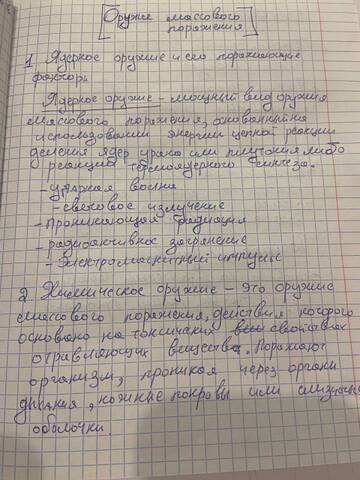 Оружие массового
поражения
1 Ядерное оружие и его поражающие
факторы
Ядерное оружие - мощный вид оружия
массового поражения, основанный на
использовании энергии цепной реакции
деления ядер урана или плутония либо
реакции термоядерного синтеза.
- ударная волна
- световое излучение
- проникающая радиация
- радиоактивное заражение
- электромагнитный импульс
2 Химическое оружие - это оружие
массового поражения, действия которого
основано на токсичных свойствах
отравляющих веществ. Поражают
организм, проникая через органы
дыхания, кожные покровы или слизистые
оболочки.